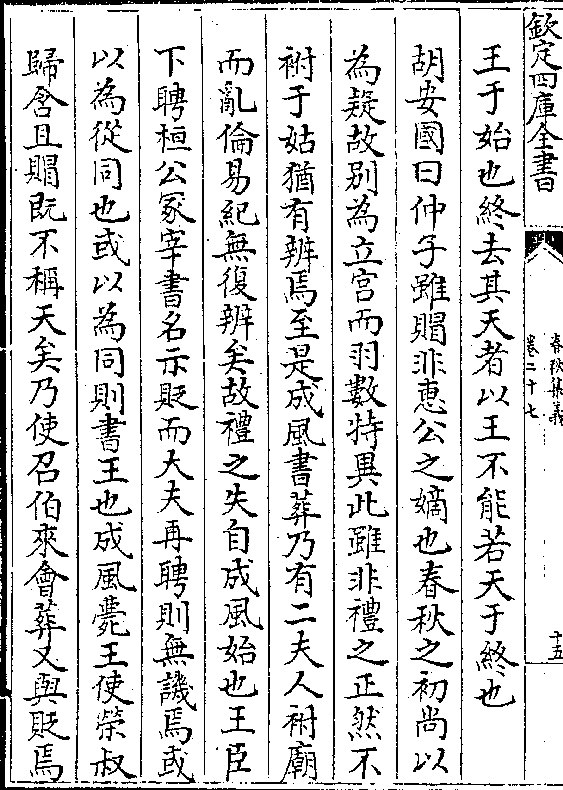 欽定四庫全書
春秋集義
卷二十七
十五
王于始也終去其天者以王不能若天于終也
胡安國曰仲子雖賵非惠公之嫡也春秋之初尚以
為疑故别為立宫而羽數特異此雖非禮之正然不
祔于姑猶有辨焉至是成風書葬乃有二夫人祔廟
而亂倫易紀無復辨矣故禮之失自成風始也王臣
下聘桓公冢宰書名示貶而大夫再聘則無譏焉或
以為從同也或以為同則書王也成風薨王使榮叔
歸含且賵既不稱天矣乃使召伯來會葬又與貶焉